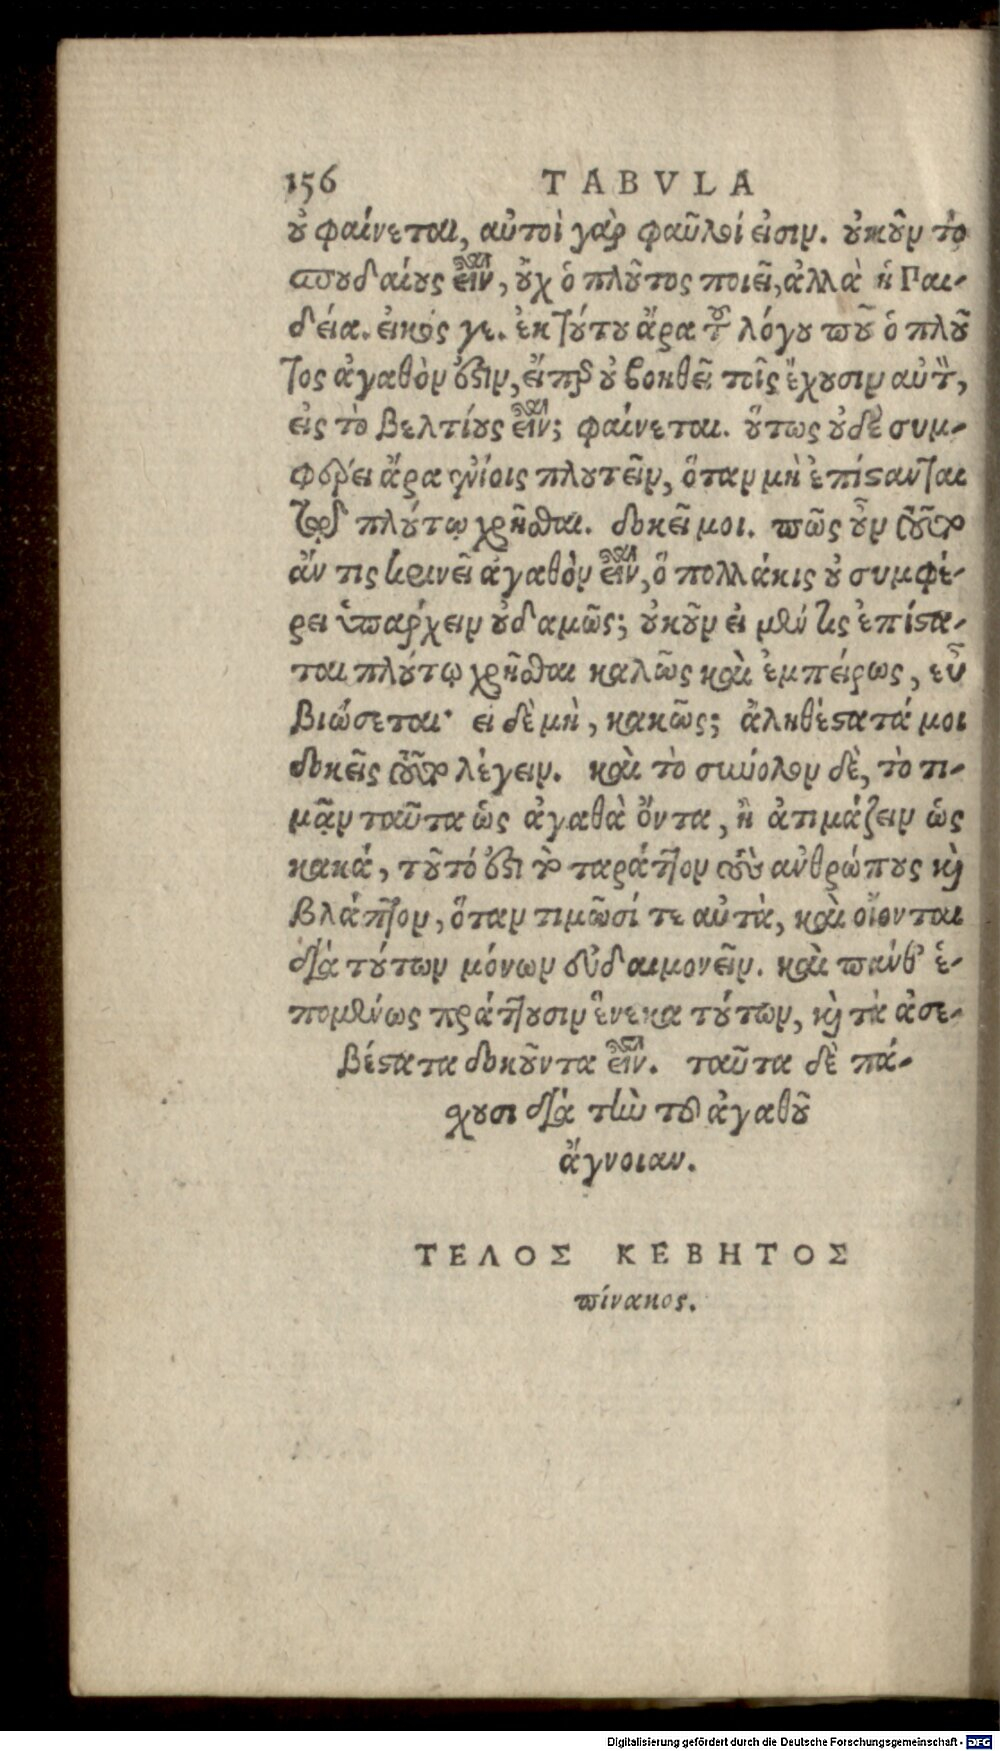 156 TABVLA
οὐ φαίνεται, αὐτοὶ γὰρ φαῦλοί εἰσιν. οὐκοῦν τὸ
σπουδαίους εἶναι, οὐχ ὁ πλοῦτος ποιεῖ, ἀλλὰ ἡ Παι-
δεία. εἰκός γε. ἐκ τούτου ἄρα τοῦ λόγου που ὁ πλοῦ
τος ἀγαθὸν ἐστιν, εἴπερ οὐ βοηθεῖ τοῖς ἔχουσιν αὐτὸ,
εἰς τὸ βελτίους εἶναι; φαίνεται. οὕτως οὐδὲ συμ-
φέρει ἄρα ἐνίοις πλουτεῖν, ὅταν μὴ ἐπίστανται
τῷ πλούτῳ χρῆσθαι. δοκεῖ μοι. πῶς οὖν τοῦτο
ἄν τις κρινεῖ ἀγαθὸν εἶναι, ὃ πολλάκις οὐ συμφέ-
ρει ὑπάρχειν οὐδαμῶς; οὐκοῦν εἰ μέν τις ἐπίστα-
ται πλούτῳ χρῆσθαι καλῶς καὶ ἐμπείρως, εὖ
βιώσεται· εἰ δὲ μὴ, κακῶς; ἀληθέστατά μοι
δοκεῖς τοῦτο λέγειν. καὶ τὸ σύνολον δὲ, τὸ τι-
μᾷν ταῦτα ὡς ἀγαθὰ ὄντα, ἢ ἀτιμάζειν ὡς
κακά, τοῦτό ἐστι τὸ ταράττον τοὺς ἀνθρώπους καὶ
βλάπτον, ὅταν τιμῶσί τε αὐτὰ, καὶ οἴονται
διὰ τούτων μόνων εὐδαιμονεῖν. καὶ πάνθ’ ἑ-
πομένως πράττουσιν ἕνεκα τούτων, καὶ τὰ ἀσε-
βέστατα δοκοῦντα εἶναι. ταῦτα δὲ πά-
σχουσι διὰ τὴν τοῦ ἀγαθοῦ
ἄγνοιαν.
ΤΕΛΟΣ ΚΕΒΗΤΟΣ
πίνακος.
Digitalisierung gefördert durch die Deutsche Forschungsgemeinschaft - DFG